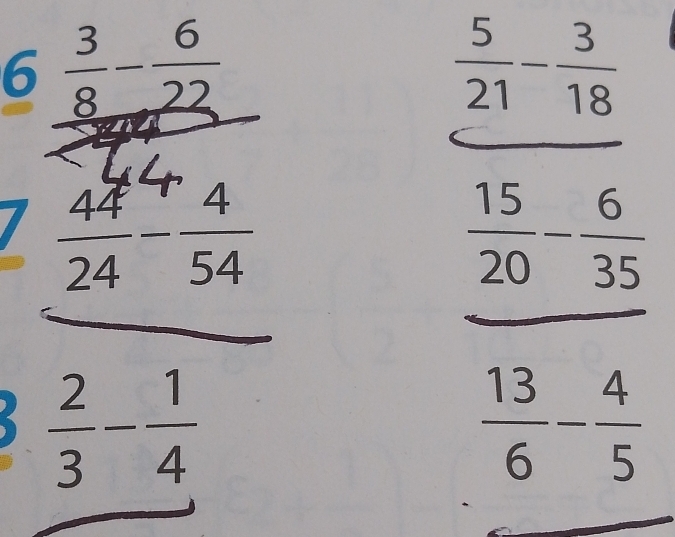 6 3/8 − 6/22 5/21 − 3/18
44
44
7 44/24 − 4/54 15/20 − 6/35
8 2/3 − 1/4 13/6 − 4/5